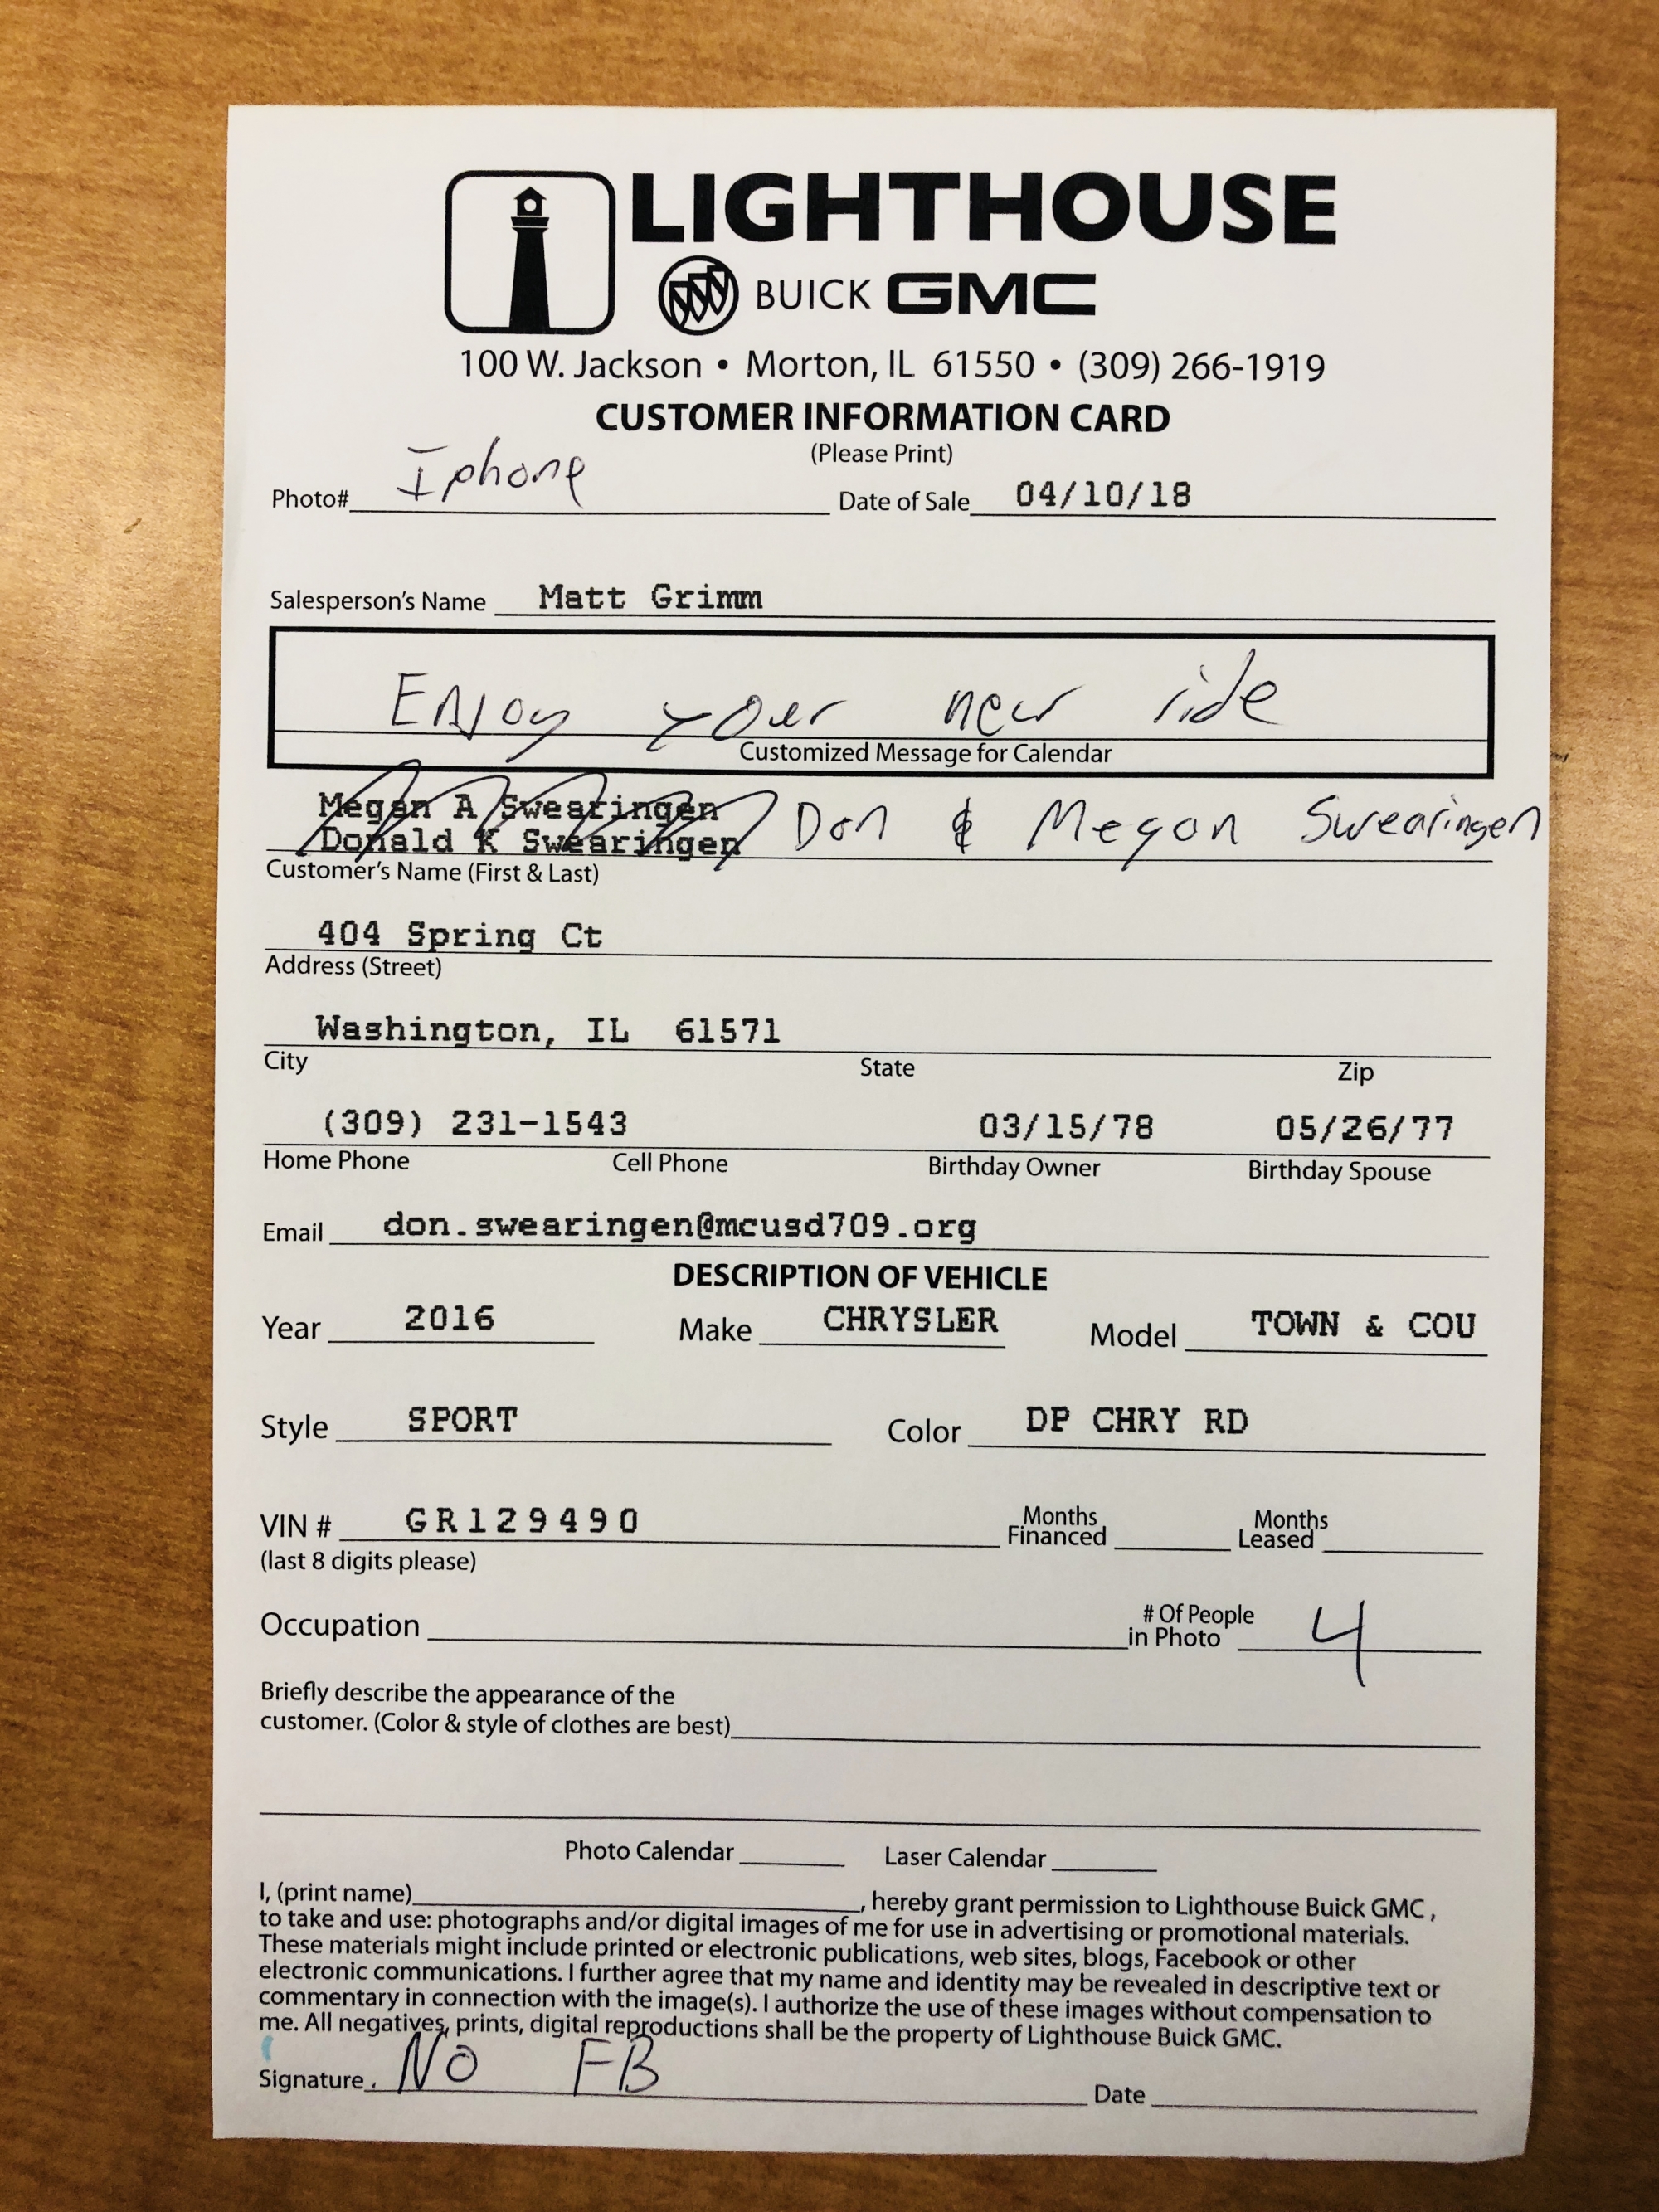 LIGHTHOUSE
BUICK GMC
100 W. Jackson • Morton, IL 61550 • (309) 266-1919
CUSTOMER INFORMATION CARD
(Please Print)
Photo# Iphone Date of Sale 04/10/18
Salesperson's Name Matt Grimm
Enjoy your new ride
Customized Message for Calendar
Megan A Swearingen
Donald K Swearingen Don & Megan Swearingen
Customer's Name (First & Last)
404 Spring Ct
Address (Street)
Washington, IL 61571
City State Zip
(309) 231-1543 03/15/78 05/26/77
Home Phone Cell Phone Birthday Owner Birthday Spouse
Email don.swearingen@mcusd709.org
DESCRIPTION OF VEHICLE
Year 2016 Make CHRYSLER Model TOWN & COU
Style SPORT Color DP CHRY RD
VIN # GR129490 Months Financed Months Leased
(last 8 digits please)
Occupation # Of People in Photo 4
Briefly describe the appearance of the
customer. (Color & style of clothes are best)
Photo Calendar Laser Calendar
I, (print name) , hereby grant permission to Lighthouse Buick GMC,
to take and use: photographs and/or digital images of me for use in advertising or promotional materials.
These materials might include printed or electronic publications, web sites, blogs, Facebook or other
electronic communications. I further agree that my name and identity may be revealed in descriptive text or
commentary in connection with the image(s). I authorize the use of these images without compensation to
me. All negatives, prints, digital reproductions shall be the property of Lighthouse Buick GMC.
Signature No FB Date